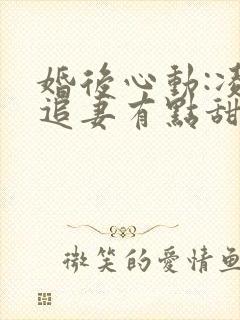 婚後心動:凌
追妻有點甜
微笑的愛情魚